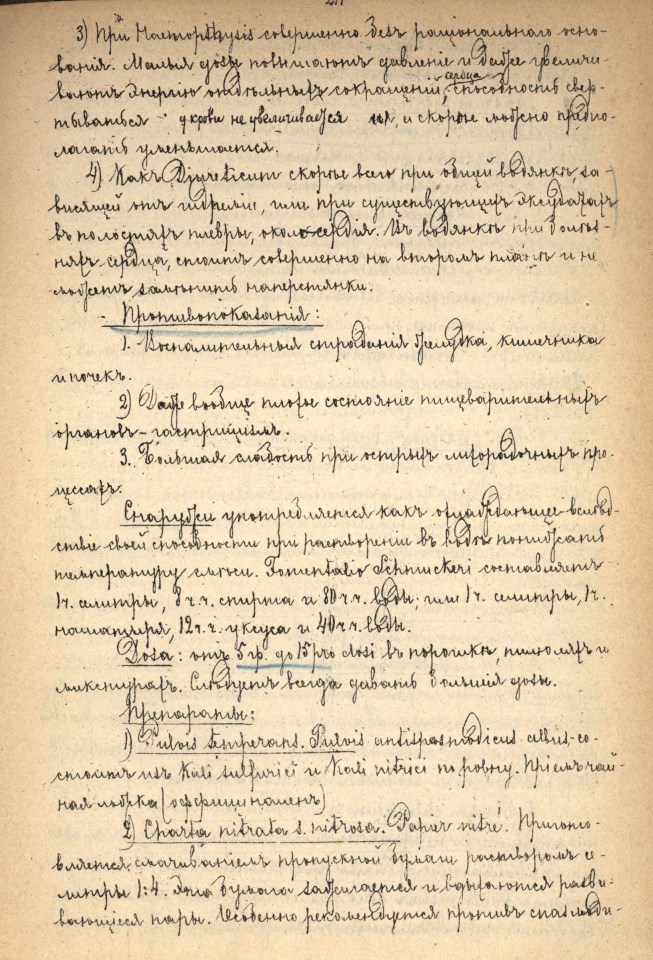 3) При Haemopthysis совершенно безъ раціональнаго осно-
ванія. Малыя дозы повышаютъ давленіе и даже увеличи-
ваютъ энергію отдѣльныхъ сокращеній сердца, способность свер-
тываться у крови не увеличивается, и скорѣе можно предпо-
лагать уменьшается.
4) Какъ Diureticum скорѣе всего при общей водянкѣ за-
висящей отъ гидреміи, или при существующихъ эксудатахъ
въ полостяхъ плевры, околосердія. Въ водянкѣ при болѣз-
няхъ сердца, стоитъ совершенно на второмъ планѣ и не
можетъ замѣнить наперстянки.
Противопоказанія:
1. Воспалительныя страданія желудка, кишечника
и почекъ.
2) Даже вообще плохое состояніе пищеварительныхъ
органовъ – гастрицизмъ.
3. Большая слабость при острыхъ лихорадочныхъ про-
цессахъ.
Снаружи употребляется какъ охлаждающее вслѣд-
ствіе своей способности при раствореніи въ водѣ понижать
температуру смѣси. Fomentatio Schmuckeri составляетъ
1 ч. селитры, 3 ч.ч. спирта и 80 ч.ч. воды; или 1 ч. селитры, 1 ч.
нашатыря, 12 ч.ч. уксуса и 40 ч.ч. воды.
Dosa: отъ 5 гр. до 15 pro dosi въ порошкѣ, пилюляхъ и
микстурахъ. Слѣдуетъ всегда давать большія дозы.
Препараты:
1) Pulvis temperans. Pulvis antispasmodicus albus, со-
стоитъ изъ Kali sulfurici и Kali nitrici по ровну. Пріемъ чай-
ная ложка (оффициналенъ)
2) Charta nitrata s. nitrosa. Papier nitré. Пригото-
вляется смачиваніемъ пропускной бумаги растворомъ се-
литры 1:4. Эта бумага зажигается и вдыхаются разви-
вающіеся пары. Особенно рекомендуется противъ спазмоди-